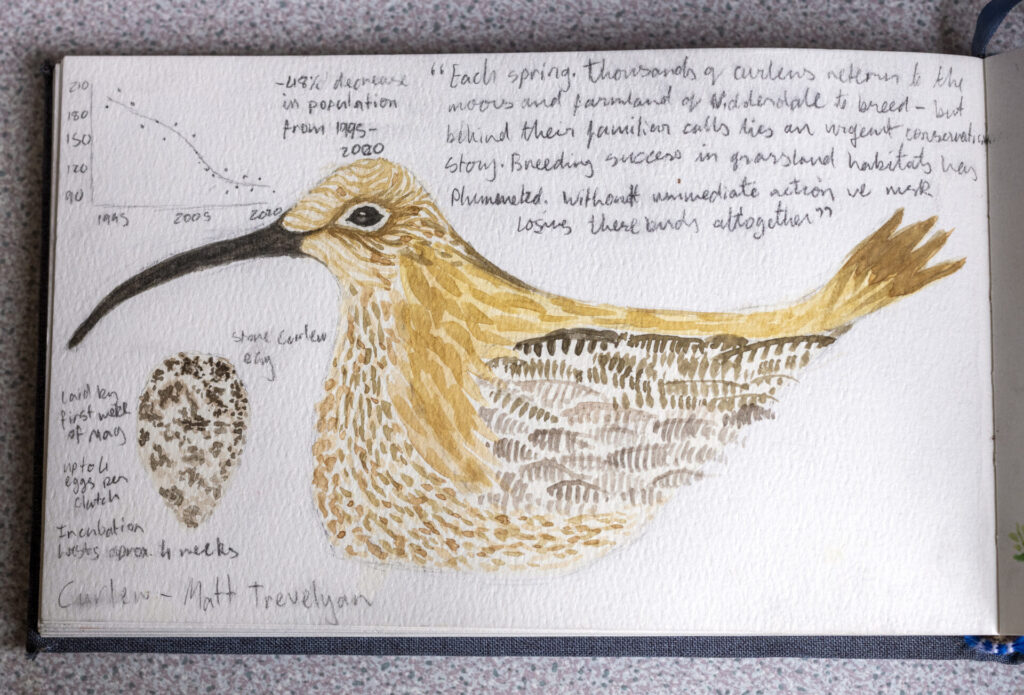 210
180
150
120
90
1995
2005
2020
-48% decrease
in population
from 1995-
2020
“Each spring. thousands of curlews return to the
moors and farmland of Nidderdale to breed – but
behind their familiar calls lies an urgent conservation
story. Breeding success in grassland habitats has
Plummeted. Without immediate action we risk
losing these birds altogether”
stone curlew
egg
laid by
first week
of may
up to 4
eggs per
clutch
Incubation
lasts aprox. 4 weeks
Curlew – Matt Trevelyan